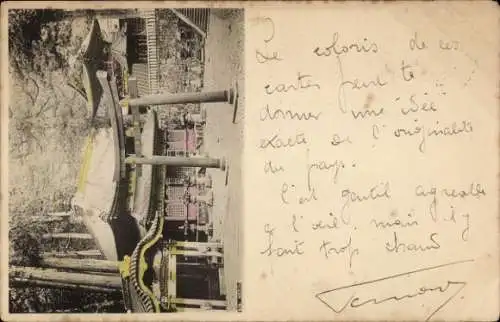 Le coloris de ces
cartes peut te
donner une idée
exacte de l'originalité
du pays.
C'est gentil agréable
à l'oeil, mais il y
fait trop chaud